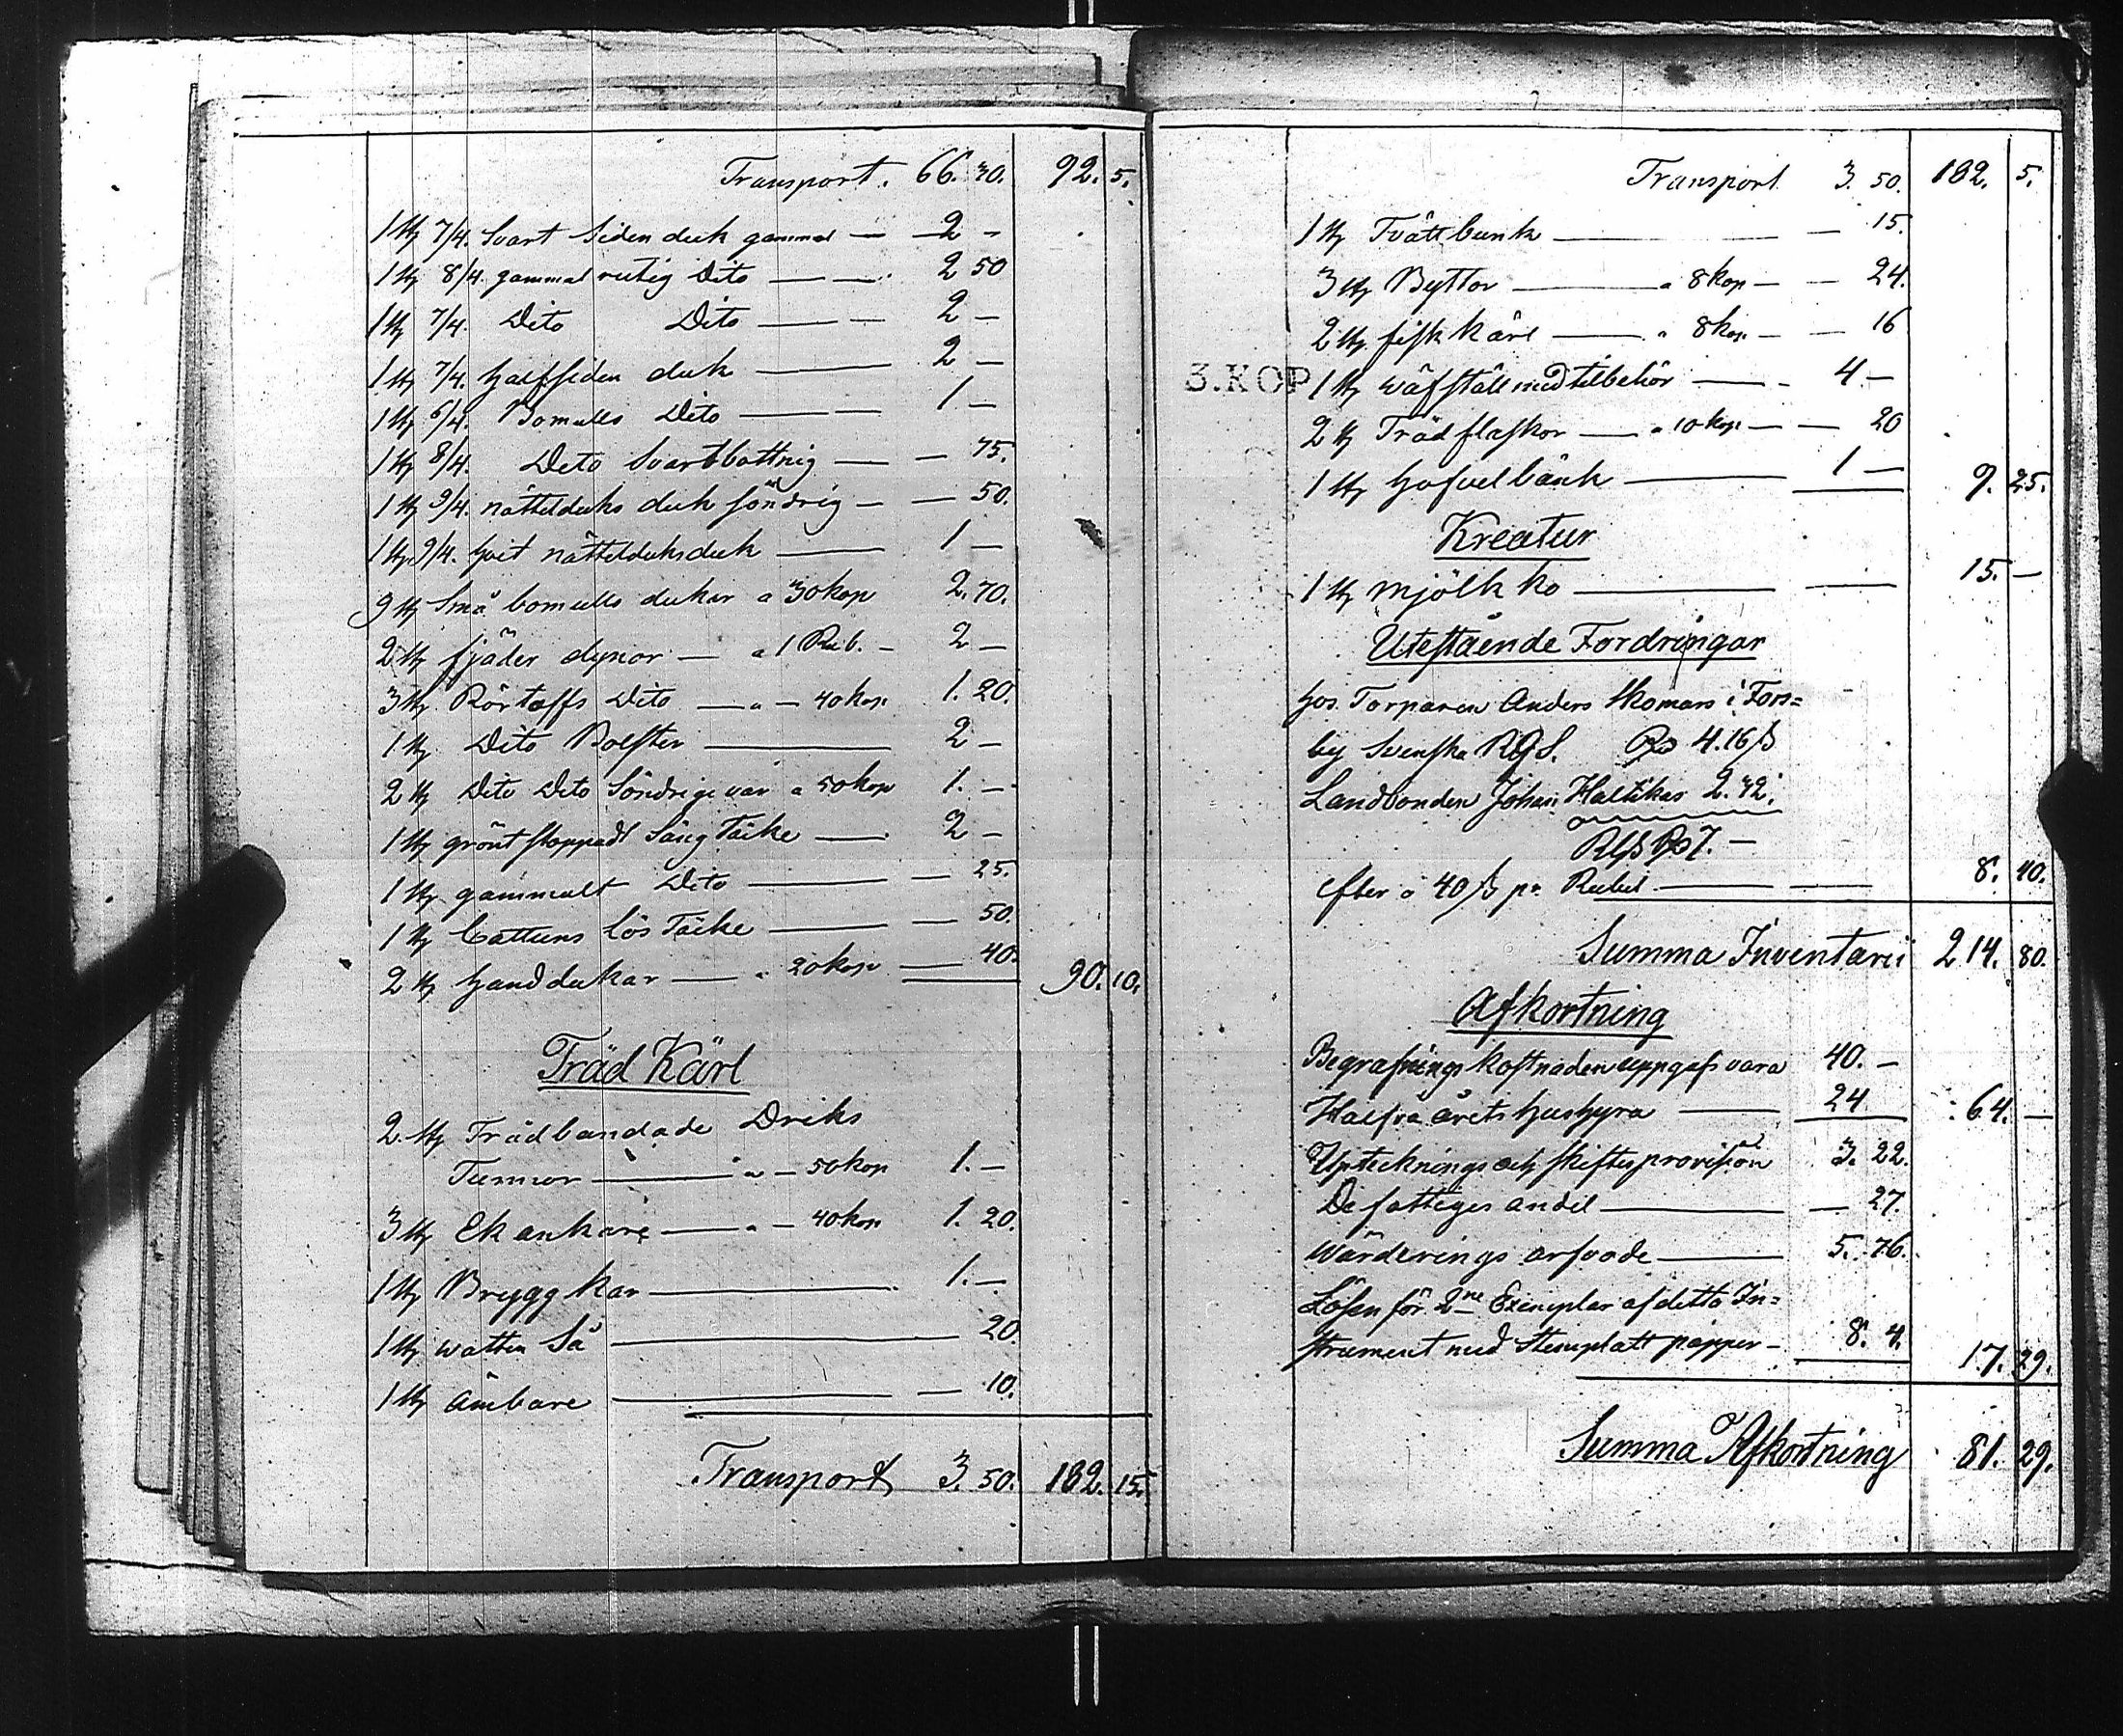 Transport. 66. 30. 92. 5.
1 st 7/4. Svart Siden duk gammal — 2 –
1 st 8/4. gammal rutig Dito — — 2 50
1 st 7/4. Dito Dito — — 2 –
1 st 7/4. halfsiden duk — 2 –
1 st 6/4. Bomulls Dito — — 1 –
1 st 8/4. Dito Svartbottnig — — 75.
1 st 9/4. nättelduks duk söndrig — — 50.
1 st 9/4. hvit nättelduksduk — 1 –
9 st Små bomulls dukar a 30 kop 2. 70.
2 st fjäder dynor — a 1 Rub. – 2 –
3 st Rörtaffs Dito — a — 40 kop. 1. 20.
1 st Dito Bolster — 2 –
2 st Dito Dito Söndrige var a 50 kop 1. –
1 st grönt stoppadt Säng Täcke — 2 –
1 st gammalt Dito — — 25.
1 st Cattuns Lös Täcke — — 50.
2 st handdukar — a 20 kop — 40. 90. 10.
Träd Kärl
2 st Trädbandade Driks
Tunnor — a — 50 kop 1. –
3 st Ek ankare — a — 40 kop 1. 20.
1 st Brygg kar — 1. –
1 st watten Så — 20
1 st Ämbare — — 10.
Transport 3. 50. 182. 15.
Transport 3. 50. 182. 5.
1 st Tvättbunk — — 15.
3 st Byttor — a 8 kop — — 24.
2 st. fiskkärl — a 8 kop. — — 16
3.KOP
1 st Wäfställ med tilbehör — 4 –
2 st Träd flaskor — a 10 kop — — 20
1 st hofvelbänk — 1 – 9. 25.
Kreatur
1 st mjölk ko — — 15. –
Utestående Fordringar
hos Torparen Anders Thomas i Fors=
by Svenska RGS. Rd 4. 16 ß
Landbonden Johan Haltikas 2. 32.
RGS Rd 7. –
efter a 40 ß pr Rubel — — 8. 40.
Summa Inventarii 214. 80.
Afkortning
Begrafnings kostnaden uppgafs vara 40. –
Halfva årets hushyra — 24 64. –
Upteknings och skiftesprovision 3. 22.
De fattiges andel — — 27.
Wärderings arfvode — 5. 76.
Lösen för 2ne Exemplar af detta In=
strument med Stemplatt papper – 8. 4. 17. 29.
Summa Afkortning 81. 29.